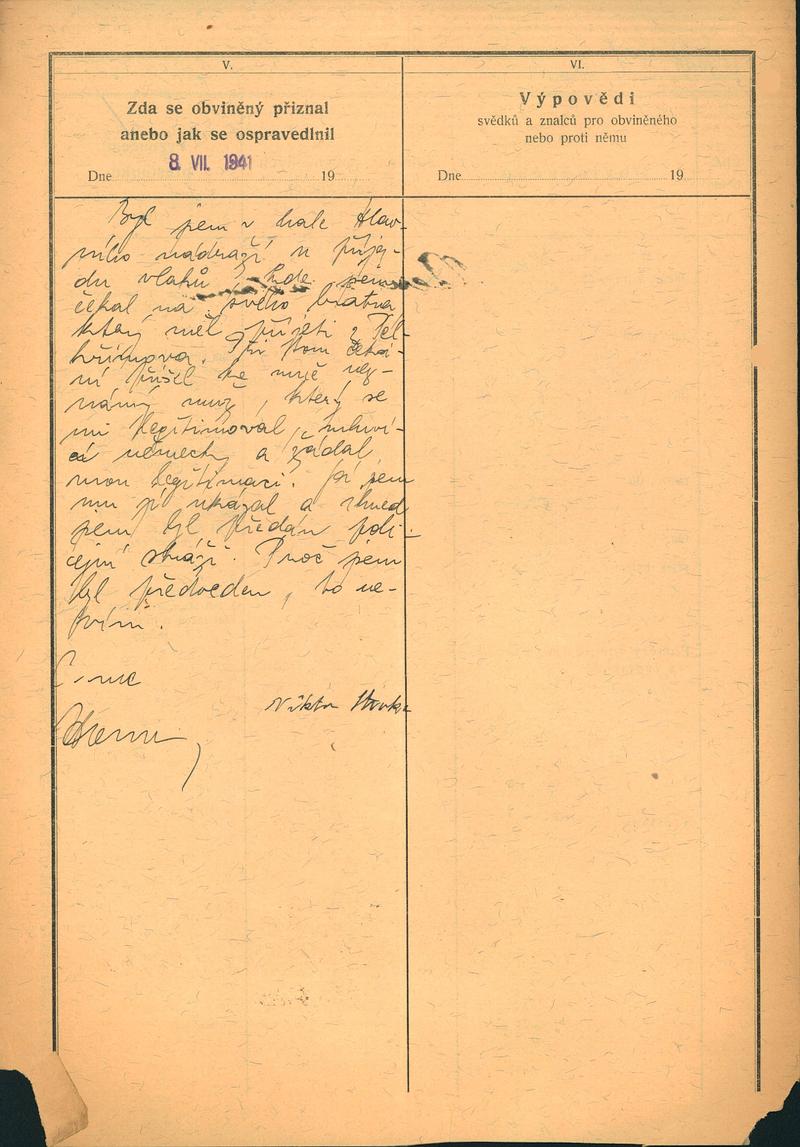 V.
Zda se obviněný přiznal
anebo jak se ospravedlnil
8. VII. 1941
Dne 19
VI.
Výpovědi
svědků a znalců pro obviněného
nebo proti němu
Dne 19
Byl jsem v hale Hlav-
ního nádraží u příjez-
du vlaků, kde jsem
čekal na svého bratra
který měl přijeti z Pel-
hřimova. Při tom čeká-
ní přišel ke mně nez-
námý muž, který se
mi legitimoval, mluví-
cí německy a žádal
mou legitimaci. Já jsem
mu ji ukázal a ihned
jsem byl předán poli-
cejní stráži. Proč jsem
byl předveden, to ne-
vím.
Viktor